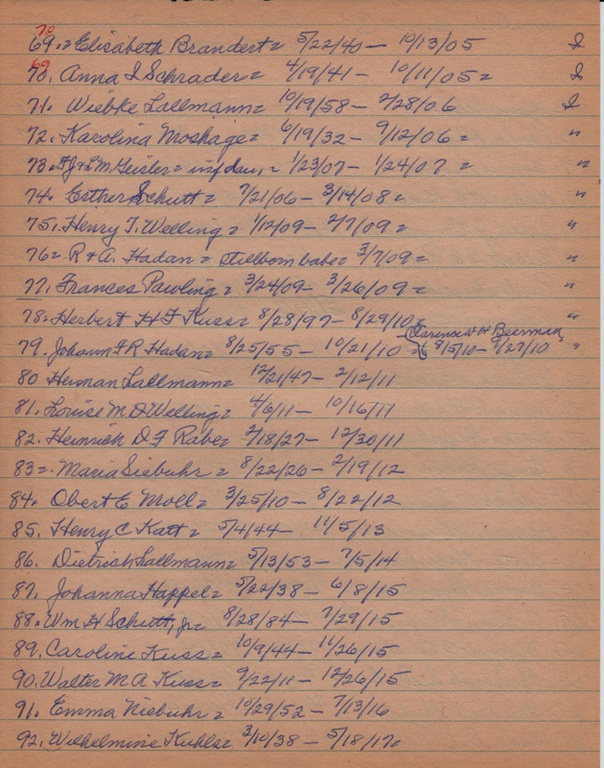 70
69.= Elisabeth Brandert= 5/22/40 - 10/13/05 I
69
70. Anna I Schrader= 4/19/41 - 10/11/05= I
71. Wiebke Lallmann= 10/19/58 - 2/28/06 I
72. Karolina Moshage= 6/19/32 - 9/12/06= "
73. FJ & LM Geisler= inf dau,= 1/23/07 - 1/24/07= "
74. Esther Schutt= 7/21/06 - 3/14/08= "
75. Henry T. Welling= 1/12/09 - 2/7/09= "
76= R & A. Hadan= stillborn babe= 3/7/09= "
77. Frances Pawling= 3/24/09 - 3/26/09= "
78. Herbert H F Kuss= 8/28/97 - 8/29/10= "
Clarence W H Beerman
79. Johann F R Hadan= 8/25/55 - 10/21/10= { 8/5/10 - 9/27/10 "
80 Herman Lallmann= 12/21/47 - 2/12/11
81. Louise M D Welling= 4/6/11 - 10/16/11
82. Heinrich D F Rabe= 2/18/27 - 12/30/11
83=. Maria Siebuhr= 8/22/26 - 2/19/12
84. Obert E Moll= 3/25/10 - 8/22/12
85. Henry C Katt= 5/4/44 - 11/5/13
86. Dietrich Lallmann= 5/13/53 - 7/5/14
87. Johanna Happel= 5/22/38 - 6/8/15
88. Wm H Schutt, jr= 8/28/84 - 7/29/15
89. Caroline Kuss= 10/9/44 - 11/26/15
90. Walter M A Kuss= 9/22/11 - 12/26/15
91. Emma Niebuhr= 10/29/52 - 7/13/16
92. Wilhelmine Kuhls= 3/10/38 - 5/18/17=